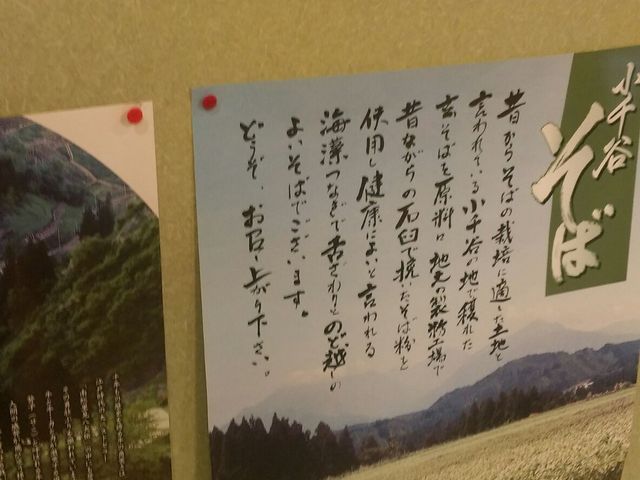 小千谷
そば
昔からそばの栽培に適した土地と
言われている小千谷の地で穫れた
玄そばを原料に地元の製粉工場で
昔ながらの石臼で挽いたそば粉と
使用し健康によいと言われる
海藻つなぎで舌ざわりとのど越しの
よいそばでございます。
どうぞ、お召し上がり下さい。